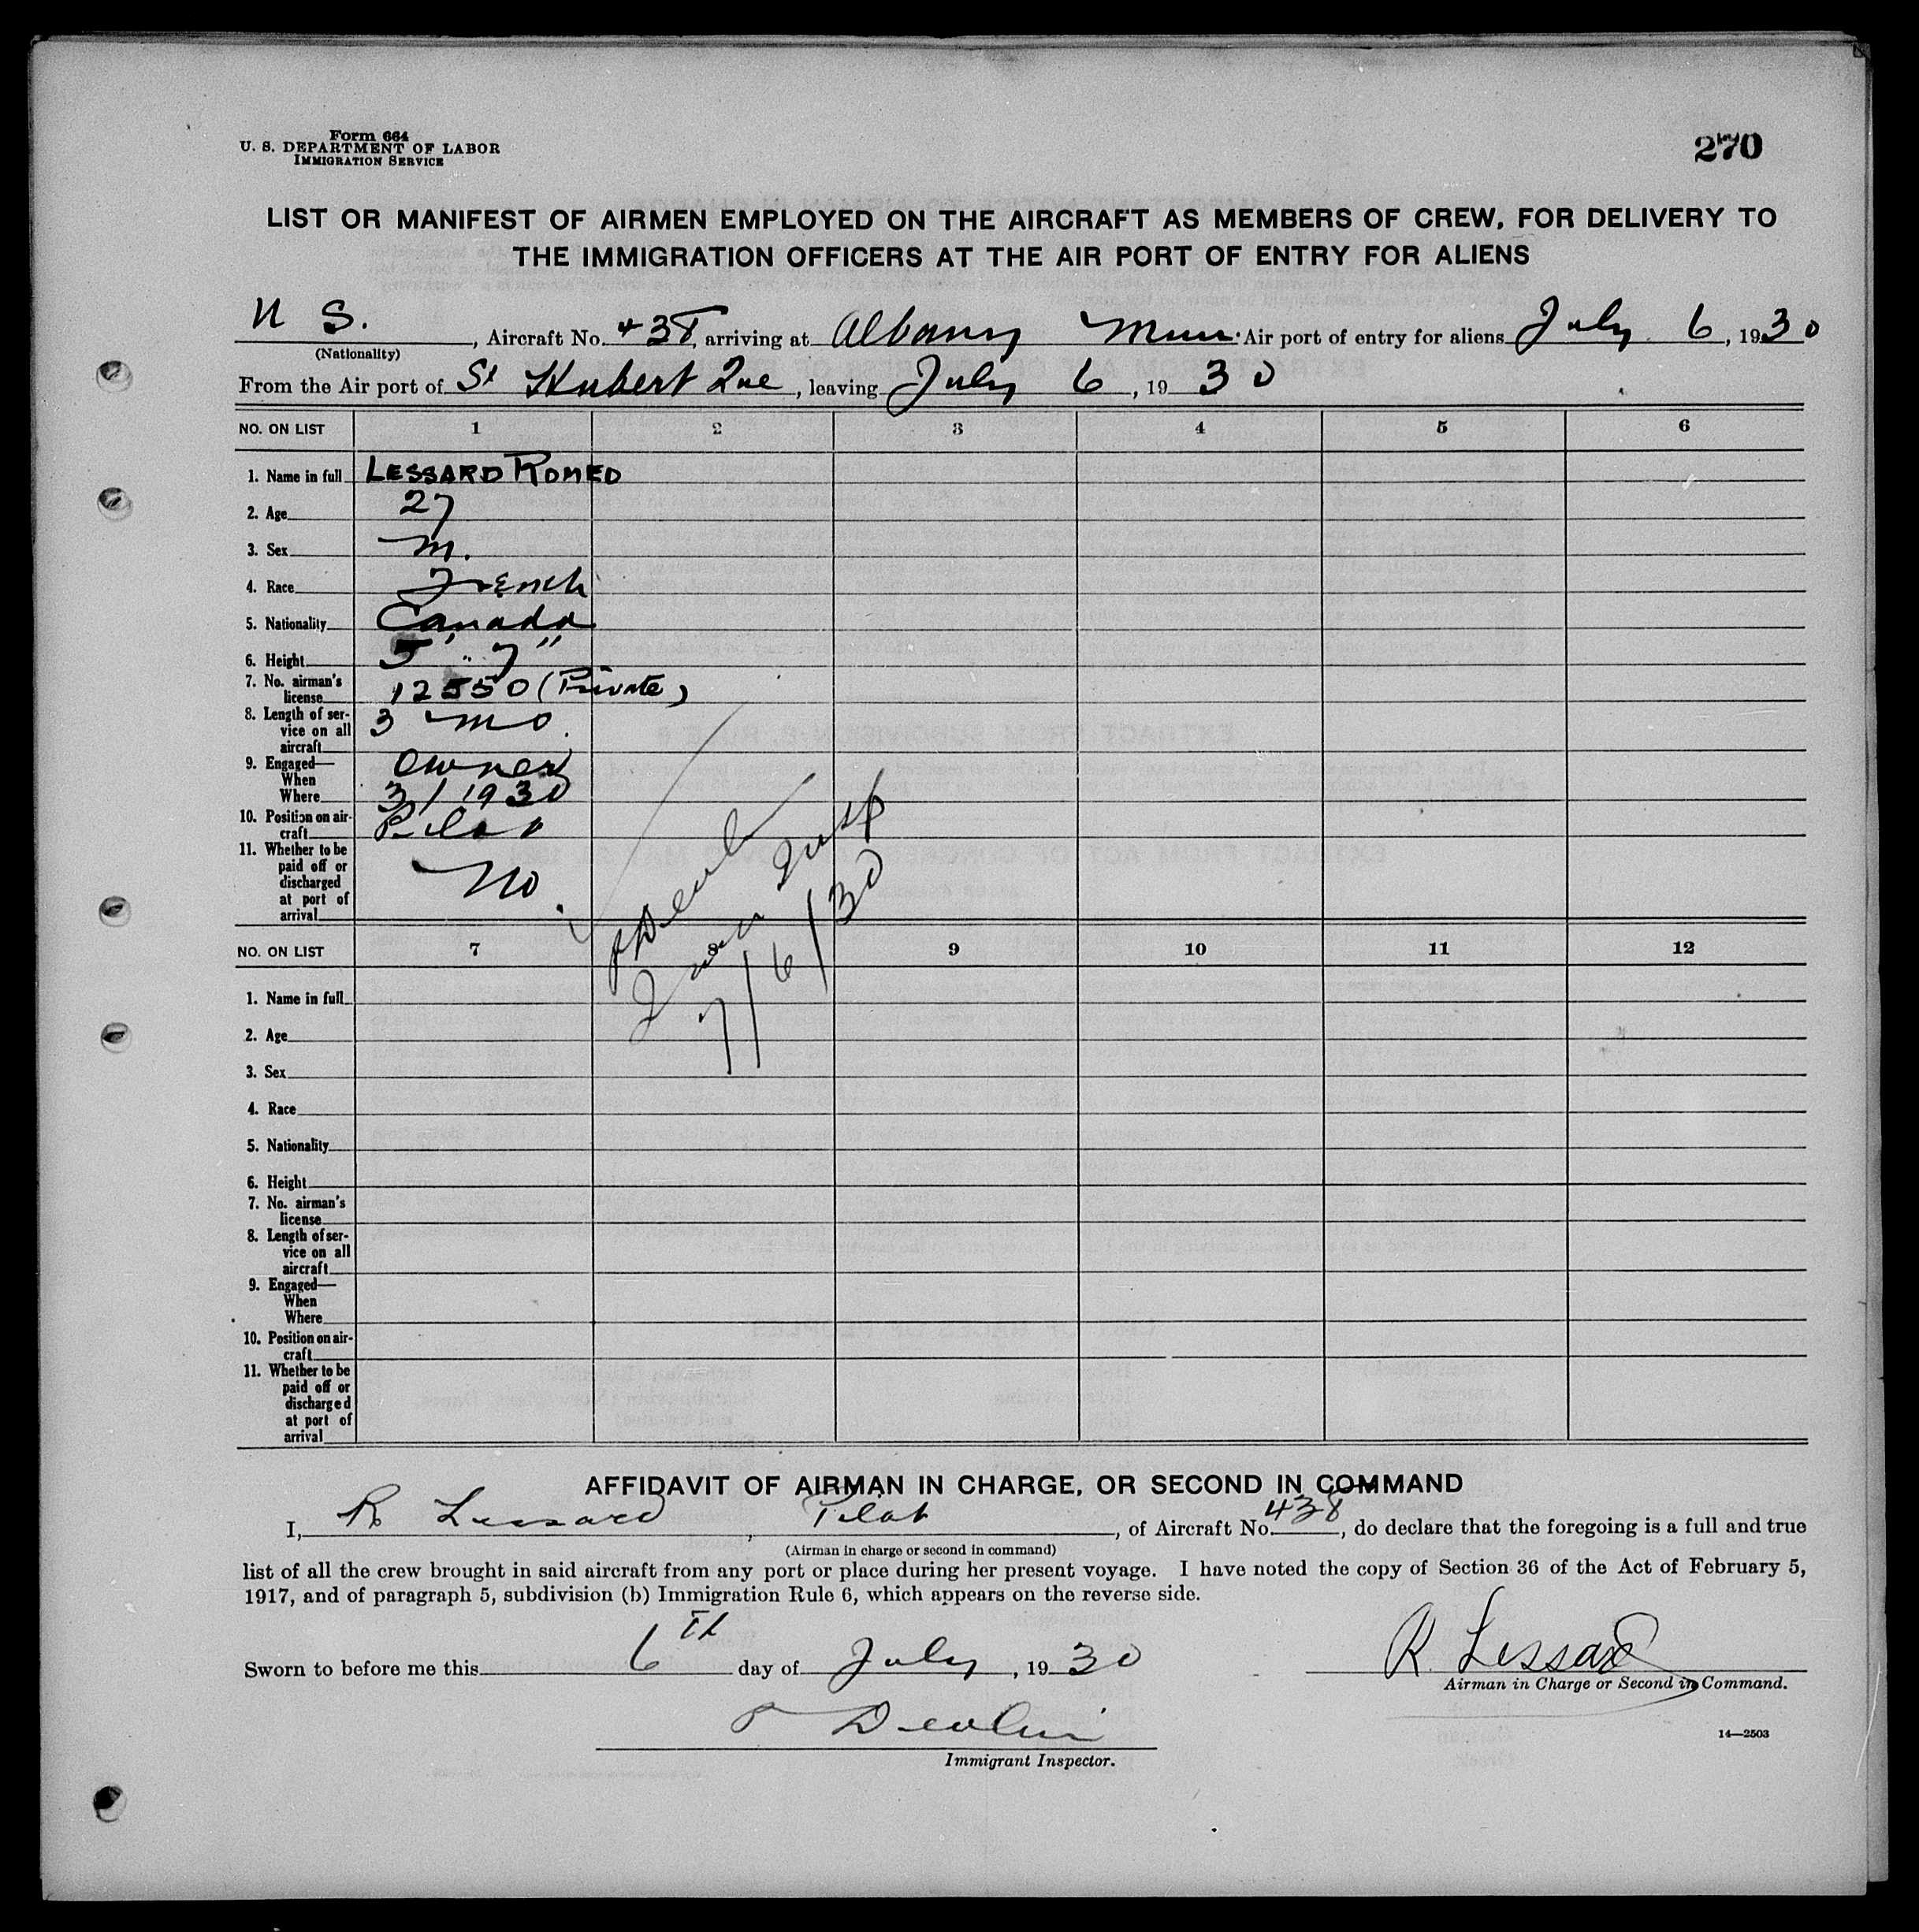 Form 664
U. S. DEPARTMENT OF LABOR
IMMIGRATION SERVICE
270
LIST OR MANIFEST OF AIRMEN EMPLOYED ON THE AIRCRAFT AS MEMBERS OF CREW, FOR DELIVERY TO
THE IMMIGRATION OFFICERS AT THE AIR PORT OF ENTRY FOR ALIENS
U S. , Aircraft No. 438, arriving at Albany Mun. Air port of entry for aliens July 6, 1930
(Nationality)
From the Air port of St Hubert Que, leaving July 6, 1930
NO. ON LIST 1 2 3 4 5 6
1. Name in full LESSARD ROMEO
2. Age 27
3. Sex M.
4. Race French
5. Nationality Canada
6. Height 5' 7"
7. No. airman's license 12550 (Private)
8. Length of service on all aircraft 3 mo.
9. Engaged— Owner
When
Where 3/1930
10. Position on aircraft Pilot
11. Whether to be paid off or discharged at port of arrival No.
P Devlin
7/6/30
NO. ON LIST 7 8 9 10 11 12
1. Name in full
2. Age
3. Sex
4. Race
5. Nationality
6. Height
7. No. airman's license
8. Length of service on all aircraft
9. Engaged—
When
Where
10. Position on aircraft
11. Whether to be paid off or discharged at port of arrival
AFFIDAVIT OF AIRMAN IN CHARGE, OR SECOND IN COMMAND
I, R Lessard, Pilot, of Aircraft No. 438, do declare that the foregoing is a full and true
(Airman in charge or second in command)
list of all the crew brought in said aircraft from any port or place during her present voyage. I have noted the copy of Section 36 of the Act of February 5,
1917, and of paragraph 5, subdivision (b) Immigration Rule 6, which appears on the reverse side.
Sworn to before me this 6th day of July, 1930
R. Lessard
Airman in Charge or Second in Command.
P Devlin
Immigrant Inspector.
14—2503